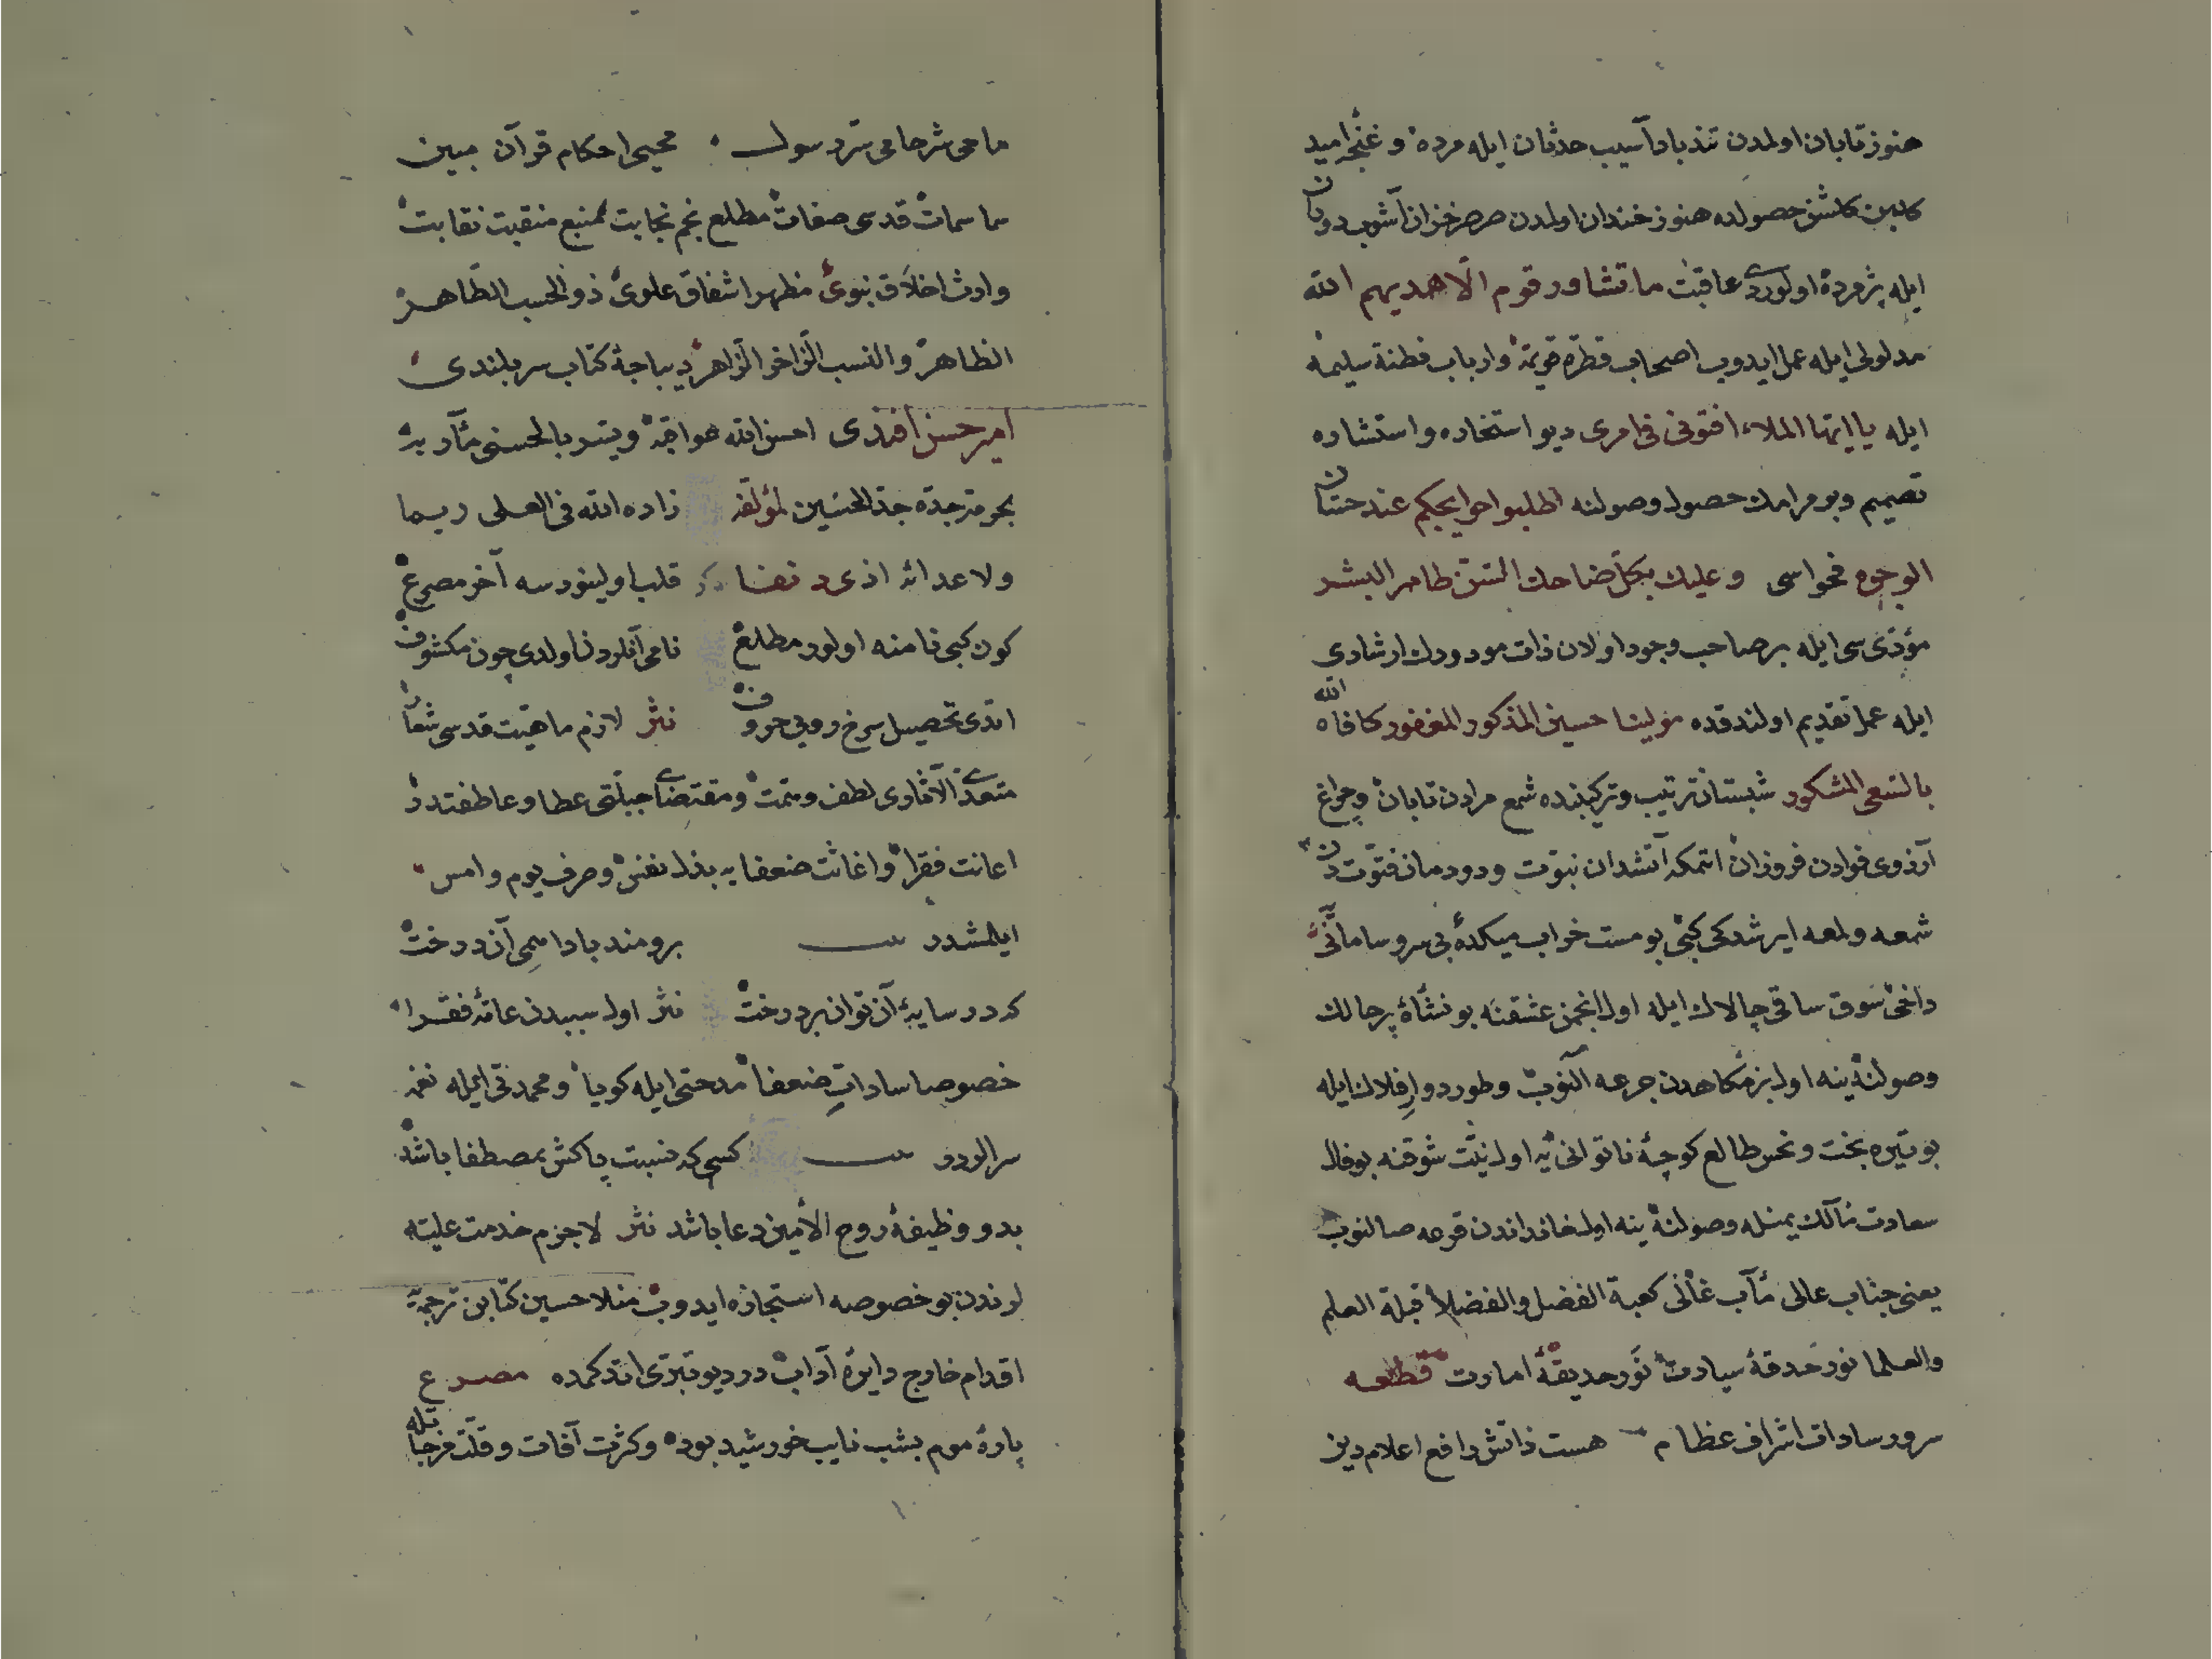 هنوز تابان اولمدن تندباد آسیب حدثان ایله مرده و غنچۀ امید
کلبن کلشن حصولده هنوز خندان اولمدن صرصر خزان آشوب دوران
ایله پژمرده اولوردی عاقبت ما تشاور قوم الّا هدیهم الله
مدلولی ایله عمل ایدوب اصحاب فطرۀ قویمه و ارباب فطنة سلیمه
ایله یا ایها الملاء افتونی فی امری دیو استخاره و استشاره
تصمیم و بو مرامك حصول وصولنه اطلبوا حوایجکم عند حسان
الوجوه فحواسی و علیك بکلّ ضاحك السنّ ظاهر البشر
مؤدّی سی ایله بر صاحب وجود اولان ذات مودودك ارشادی
ایله عمل تقدیم اولندقده مولینا حسین المذکور المغفور کافاه الله
بالسّعی المشکور شبستان ترتیب و ترکیبنده شمع مرادن تابان و چراغ
آرزوی فوادن فروزان اتمکه آتشدان نبوّت و دودمان فتوّتدن
شعه و لمعه ایرشدکی کبی بو مست خواب میکدۀ بی سر و سامانی
داخی سوق ساقی چالاك ایله اول انجمن عشقنه بو نشأۀ پر حالك
وصولنه ینه اول بزمکاهدن جرعه النوب و طور دوار افلاك ایله
بو تیره بخت و نحس طالع کوچۀ ناتوانی یه اول نیّت شوقنه بو فال
سعادت مآلك یمنله وصولنه ینه اول خانداندن قرعه صالنوب
یعنی جناب عالی مآب غالی کعبة الفضل و الفضلا قبلة العلم
والعلما نور حدقۀ سیادت نَور حدیقۀ امارت قطعه
سرور سادات اشراف عظام هست ذاتش رافع اعلام دین
ماحی شر حامی شرد سول محیی احکام قرآن مبین
سما سمات قدسی صفات مطلع نجم نجابت منبع منقبت نقابت
وارث اخلاق نبوی مظهر اشفاق علوی ذو الحسب الطّاهر
الظاهر و النسب الزاخر الزاهر دیباجۀ کتاب سربلندی
امیر حسن افندی احسن الله عواقبه و یسر بالحسنی مآربه
بحرمة جدّه جدّ الحسنین لمؤلّفه زاده الله فی العلی ربما
ولاعدائه اذی د نغما قلب اولینورسه آخر مصرع
کون کبی نامنه اولور مطلع نامی آنلردن اولدی چون مکشوف
اتدی تحصیل سرخ رویی حروف نثر لازم ماهیّت قدسی شعار
متعدّی الآثاری لطف و متمت و مقتضای جبلّتی عطا و عاطفتدر
اعانت فقرا و اغاثت ضعفایه بذل نفس و صرف یوم و امس
ایلمشدر برومند باد اسمی آن درخت
که در سایۀ آن توان برد رخت نثر اول سببدن عامّۀ فقرا
خصوصا سادات ضعفا مدحتی ایله کویا و محمدتی ایله نغمه
سرالردر کسی که نسبت پاکش بمصطفا باشد
بدو وظیفۀ روح الأمین دعا باشد نثر لاجرم خدمت علیّه
لرندن بو خصوصه استجازه ایدوب منلا حسین کتابن ترجمۀ
اقدام خارج دایرۀ آدابدر دیو تبرّی اتدکمده مصرع
پارۀ موم بشب نایب خورشید بود و کثرت آفات و قلّت مزجاتله